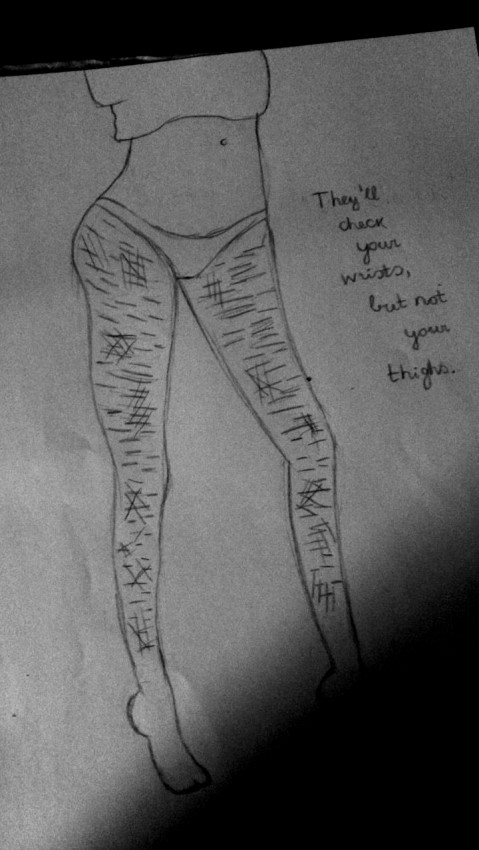 They'll
check
your
wrists,
but not
your
thighs.